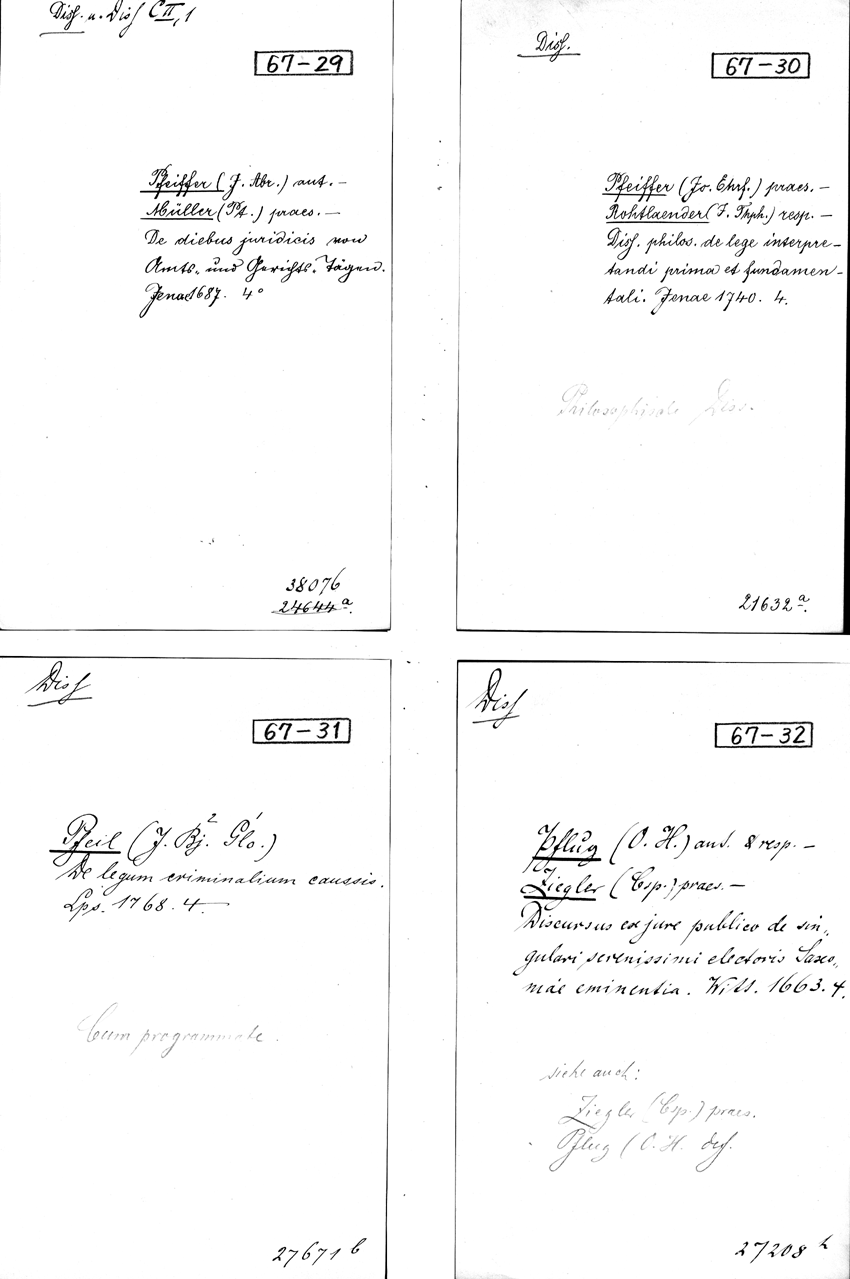 Diss. u. Diss C II, 1
67-29
Pfeiffer (J. Abr.) aut. –
Müller (Pt.) praes. –
De diebus juridicis von
Amts- und Gerichts-Tägen.
Jena 1687. 4°
38076
24644 a.
Diss.
67-30
Pfeiffer (Jo. Ehrf.) praes. –
Rohtlaender (J. Thph.) resp. –
Diss. philos. de lege interpre-
tandi prima et fundamen-
tali. Jenae 1740. 4.
Philosophische Diss.
21632 a.
Diss
67-31
Pfeil (J. Bj. 2 Glo.)
De legum criminalium caussis.
Lps. 1768. 4.
Cum programmate.
27671 b
Diss
67-32
Pflug (O. H.) aut. & resp. –
Ziegler (Csp.) praes. –
Discursus ex jure publico de sin-
gulari serenissimi electoris Saxo-
niae eminentia. Witt. 1663. 4.
siehe auch:
Ziegler (Csp.) praes.
Pflug (O. H. def.
27208